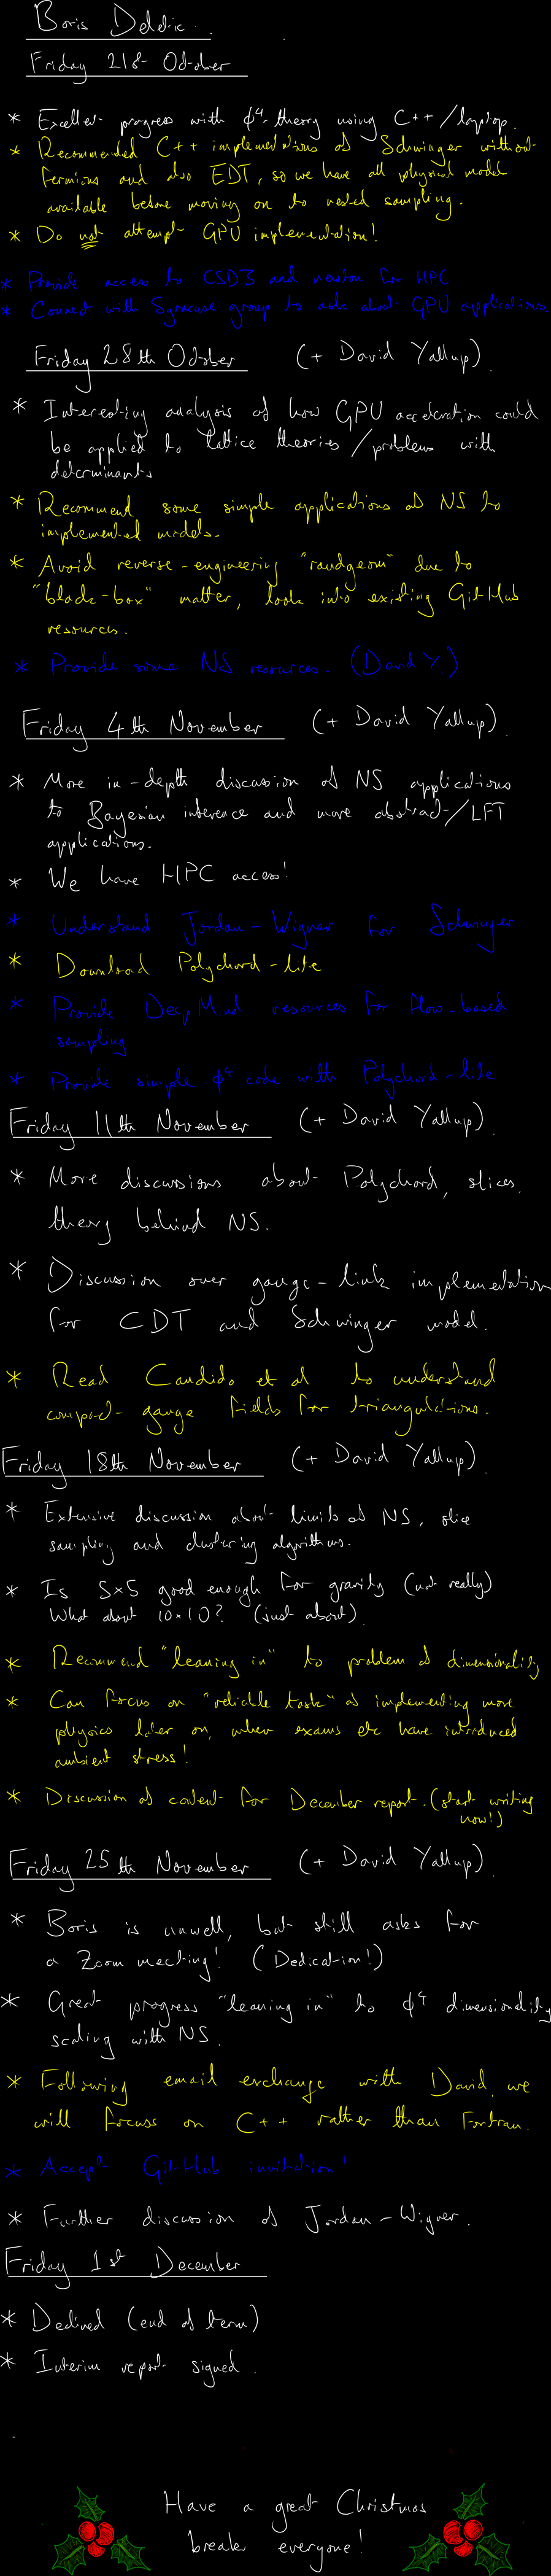 Boris Deldic.
Friday 21st October
* Excellent progress with ϕ⁴-theory using C++/laptop.
* Recommended C++ implementations of Schwinger without
fermions and also EDT, so we have all physical model
available before moving on to nested sampling.
* Do not attempt GPU implementation!
* Provide access to CSD3 and newton for HPC
* Connect with Syracuse group to ask about GPU applications
Friday 28th October (+ David Yallup).
* Interesting analysis of how GPU acceleration could
be applied to lattice theories/problems with
determinants
* Recommend some simple applications of NS to
implemented models.
* Avoid reverse-engineering "randgeom" due to
"black-box" matter, look into existing GitHub
resources.
* Provide some NS resources. (David Y.)
Friday 4th November (+ David Yallup).
* More in-depth discussion of NS applications
to Bayesian inference and more abstract/LFT
applications.
* We have HPC access!
* Understand Jordan-Wigner for Schwinger
* Download Polychord-lite
* Provide DeepMind resources for flow-based
sampling
* Provide simple ϕ⁴ code with Polychord-lite
Friday 11th November (+ David Yallup).
* More discussions about Polychord, slices,
theory behind NS.
* Discussion over gauge-link implementation
for CDT and Schwinger model.
* Read Candido et al to understand
compact gauge fields for triangulations.
Friday 18th November (+ David Yallup).
* Extensive discussion about limits of NS, slice
sampling and clustering algorithms.
* Is 5×5 good enough for gravity (not really)
What about 10×10? (just about).
* Recommend "leaning in" to problem of dimensionality
* Can focus on "reliable task" of implementing more
physics later on, when exams etc have introduced
ambient stress!
* Discussion of content for December report. (start writing
now!)
Friday 25th November (+ David Yallup).
* Boris is unwell, but still asks for
a Zoom meeting! (Dedication!)
* Great progress "leaning in" to ϕ⁴ dimensionality
scaling with NS.
* Following email exchange with David, we
will focuss on C++ rather than Fortran.
* Accept GitHub invitation!
* Further discussion of Jordan-Wigner.
Friday 1st December
* Declined (end of term)
* Interim report signed.
Have a great Christmas
break everyone!